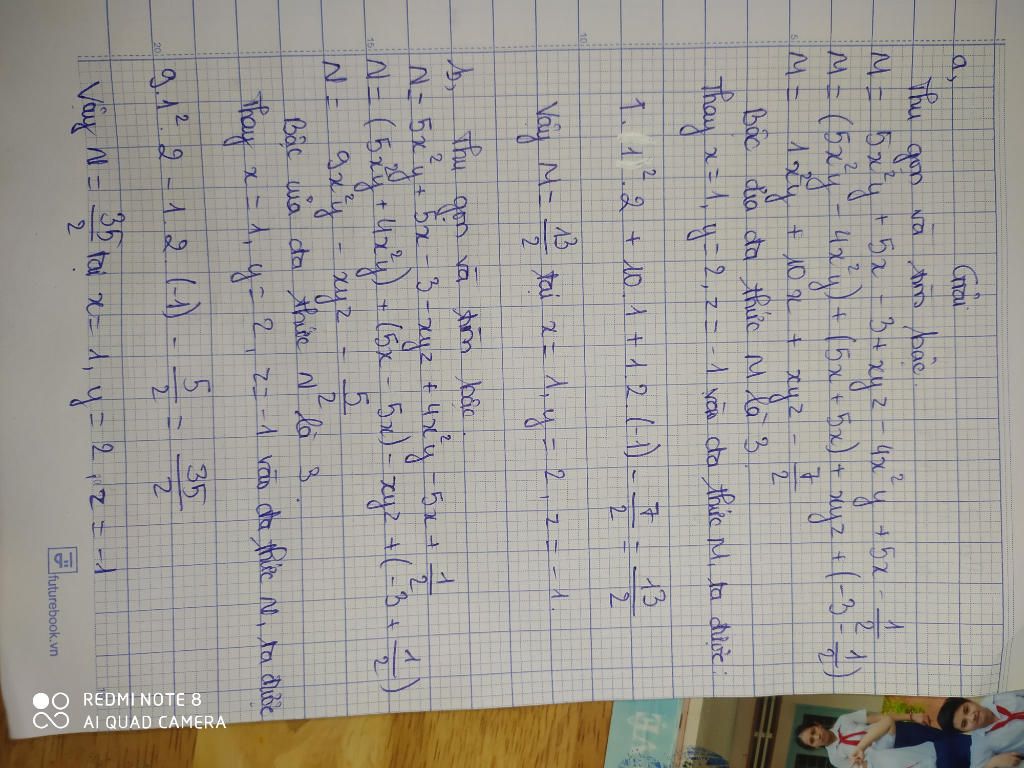 Giải
a,
Thu gọn và tìm bậc.
M = 5x²y + 5x - 3 + xyz - 4x²y + 5x - 1/2
M = (5x²y - 4x²y) + (5x + 5x) + xyz + (-3 - 1/2)
M = 1x²y + 10x + xyz - 7/2
Bậc của đa thức M là 3.
Thay x = 1, y = 2, z = -1 vào đa thức M, ta được:
1.1².2 + 10.1 + 1.2.(-1) - 7/2 = 13/2
Vậy M = 13/2 tại x = 1, y = 2, z = -1.
b, Thu gọn và tìm bậc.
N = 5x²y + 5x - 3 - xyz + 4x²y - 5x + 1/2
N = (5x²y + 4x²y) + (5x - 5x) - xyz + (-3 + 1/2)
N = 9x²y - xyz - 5/2
Bậc của đa thức N là 3.
Thay x = 1, y = 2, z = -1 vào đa thức N, ta được
9.1².2 - 1.2.(-1) - 5/2 = 35/2
Vậy N = 35/2 tại x = 1, y = 2, z = -1
5
10
15
20
futurebook.vn
REDMI NOTE 8
AI QUAD CAMERA